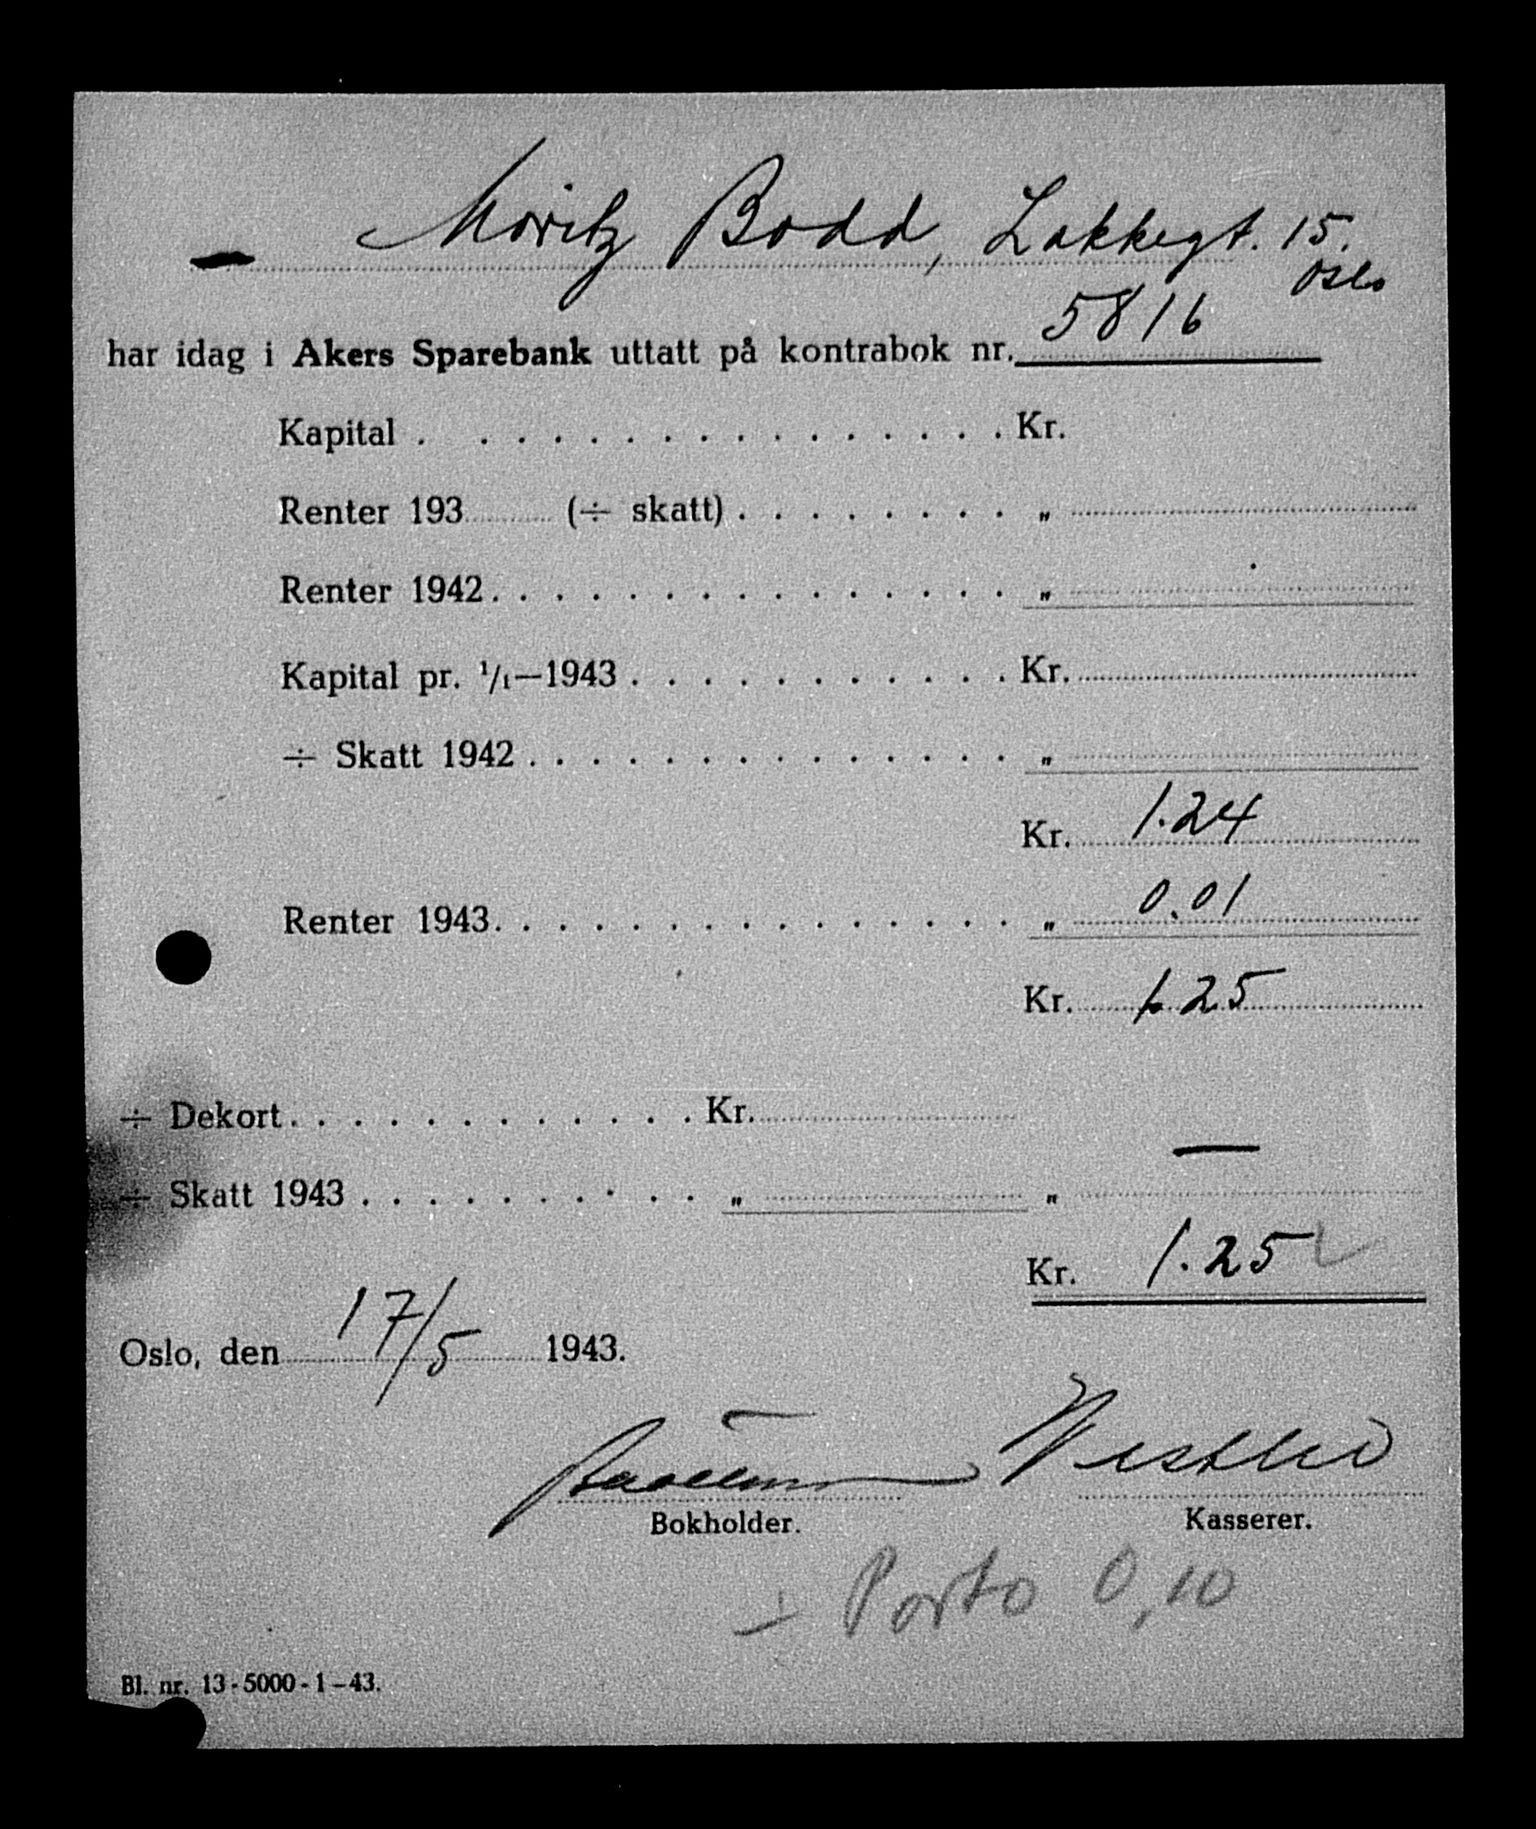 Moritz Bodd, Lakkegt. 15.
Oslo
har idag i Akers Sparebank uttatt på kontrabok nr. 5816
Kapital . . . . . . . . . . . . . . . . Kr.
Renter 193 (÷ skatt) . . . . . . . . . "
Renter 1942 . . . . . . . . . . . . . . . "
Kapital pr. 1/1—1943 . . . . . . . . . . . Kr.
÷ Skatt 1942 . . . . . . . . . . . . . . "
Kr. 1.24
Renter 1943 . . . . . . . . . . . . . . . " 0.01
Kr. 1.25
÷ Dekort . . . . . . . . . . . . Kr.
—
÷ Skatt 1943 . . . . . . . . . . " "
Kr. 1.25
Oslo, den 17/5 1943.
Bokholder. Kasserer.
÷ Porto 0,10
Bl. nr. 13-5000-1-43.